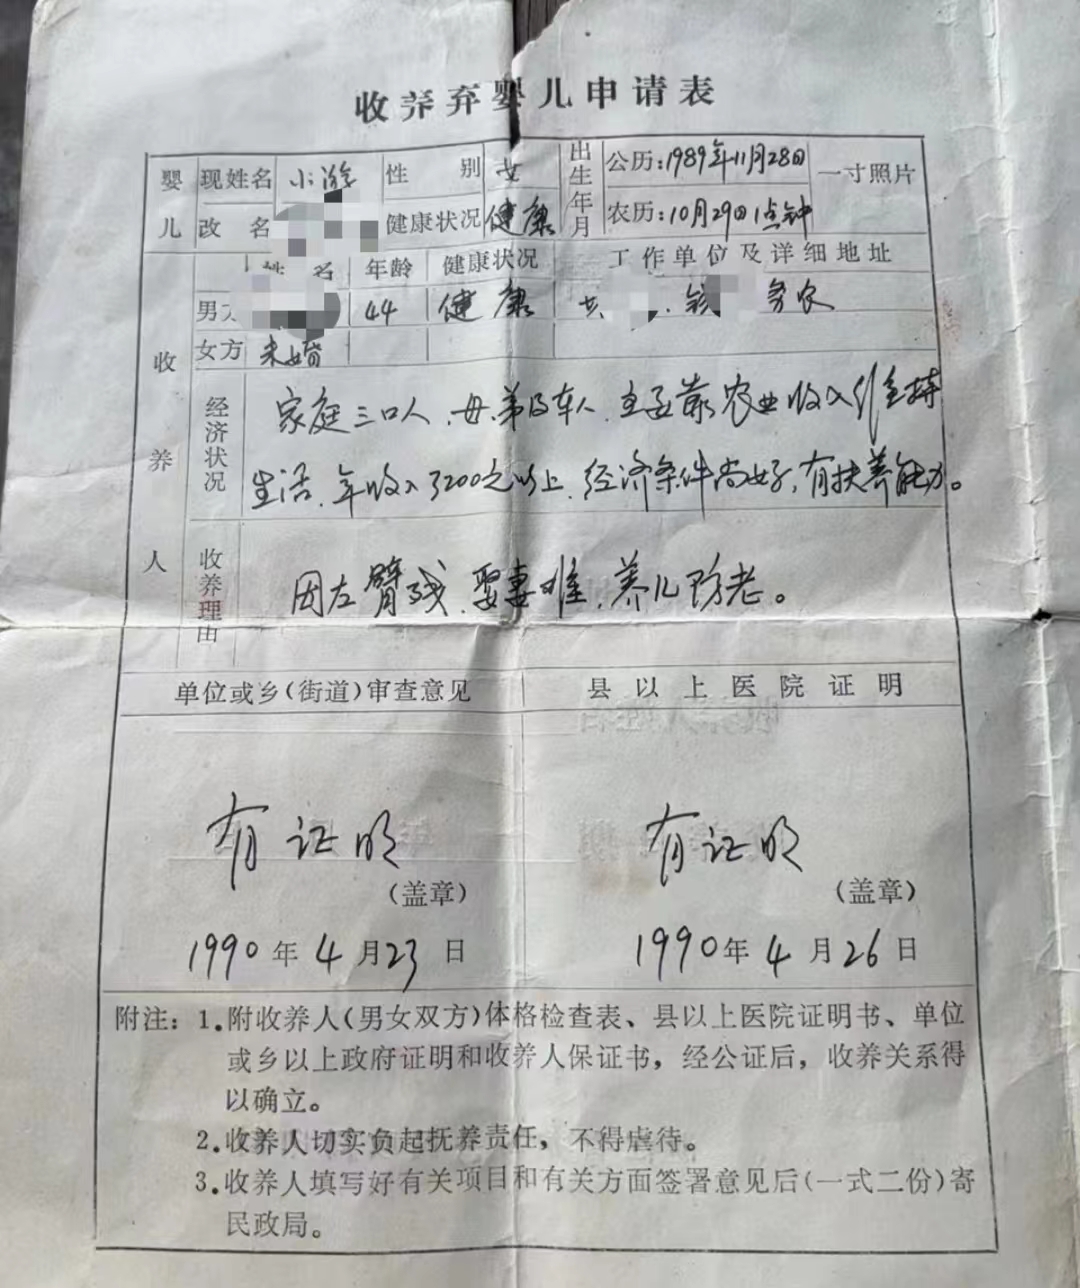 收养弃婴儿申请表
婴儿 现姓名 小 性别 女 出生年月 公历:1989年11月28日 一寸照片
改名 健康状况 健康 农历:10月29日1点钟
收养人 姓名 年龄 健康状况 工作单位及详细地址
男方 44 健康 务农
女方 未婚
经济状况 家庭三口人、母、弟及本人、主要靠农业收入维持
生活、年收入3200元以上、经济条件尚好,有扶养能力。
收养理由 因左臂残、娶妻难、养儿防老。
单位或乡(街道)审查意见 县以上医院证明
有证明 有证明
(盖章) (盖章)
1990年4月23日 1990年4月26日
附注:1.附收养人(男女双方)体格检查表、县以上医院证明书、单位
或乡以上政府证明和收养人保证书,经公证后,收养关系得
以确立。
2.收养人切实负起抚养责任,不得虐待。
3.收养人填写好有关项目和有关方面签署意见后(一式二份)寄
民政局。